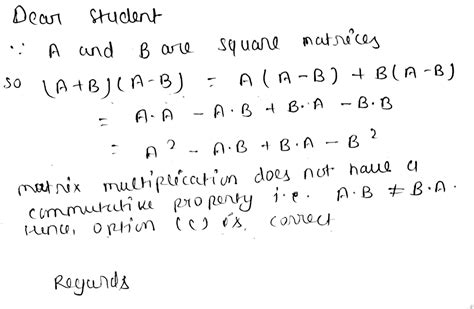 Dear Student
∵ A and B are square matrices
so (A+B)(A-B) = A(A-B) + B(A-B)
= A·A - A·B + B·A - B·B
= A² - A·B + B·A - B²
matrix multiplication does not have a
commutative property i.e. A·B ≠ B·A.
Hence, option (c) is correct
Regards